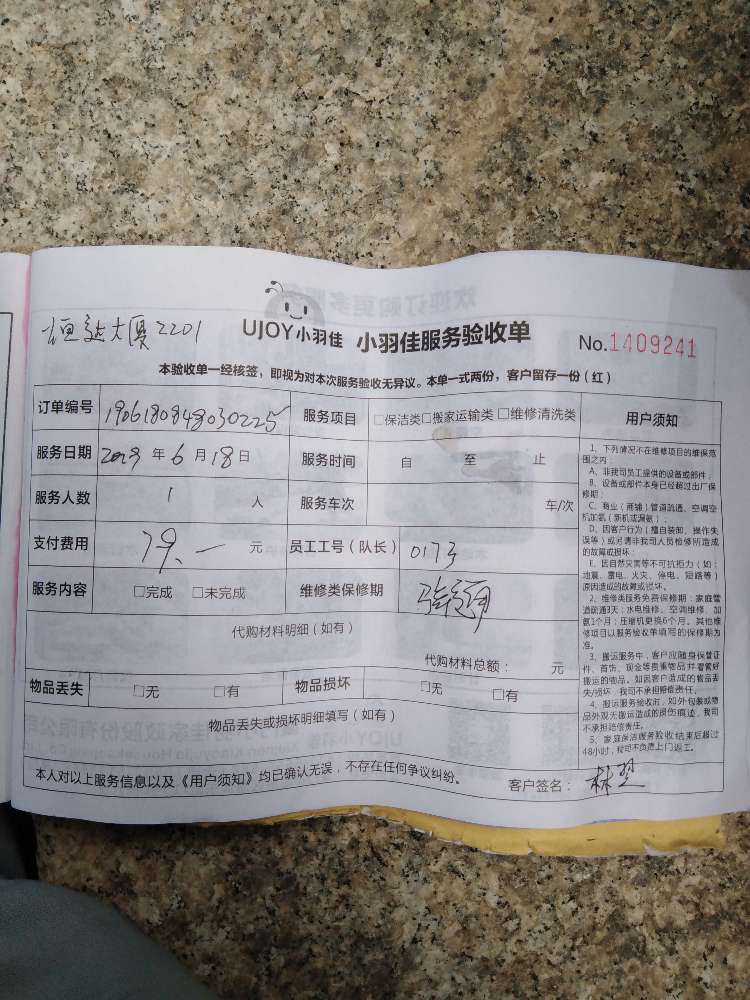 恒达大厦2201
UJOY小羽佳 小羽佳服务验收单 No.1409241
本验收单一经核签，即视为对本次服务验收无异议。本单一式两份，客户留存一份（红）
订单编号 1906180848030225 服务项目 □保洁类□搬家运输类□维修清洗类
服务日期 2019年6月18日 服务时间 自 至 止
服务人数 1 人 服务车次 车/次
支付费用 79.一 元 员工工号（队长） 0173
服务内容 □完成 □未完成 维修类保修期
代购材料明细（如有）
代购材料总额： 元
物品丢失 □无 □有 物品损坏 □无 □有
物品丢失或损坏明细填写（如有）
本人对以上服务信息以及《用户须知》均已确认无误，不存在任何争议纠纷。 客户签名：
用户须知
1、下列情况不在维修项目的维保范
围之内：
A、非我司员工提供的设备或部件；
B、设备或部件本身已经超过出厂保
修期；
C、商业（商铺）管道疏通、空调空
机加氨（新机或漏氨）
D、因客户行为（擅自装卸、操作失
误等）或对请非我司人员检修所造成
的故障或损坏；
E、因自然灾害等不可抗拒力（如：
地震、雷电、火灾、停电、短路等）
原因造成的故障或损坏。
2、维修类服务免费保修期：家庭管
道疏通3天；水电维修、空调维修、加
氨1个月；压缩机更换6个月。其他维
修项目以服务验收单填写的保修期为
准。
3、搬运服务中，客户应随身保管证
件、首饰、现金等贵重物品并看管好
搬运的物品。如因客户造成的物品丢
失/损坏，我司不承担赔偿责任。
4、搬运服务验收时，如外包装或物
品外观无搬运造成的损伤痕迹，我司
不承担赔偿责任。
5、家庭保洁服务验收结束后超过
48小时，我司不负责上门返工。